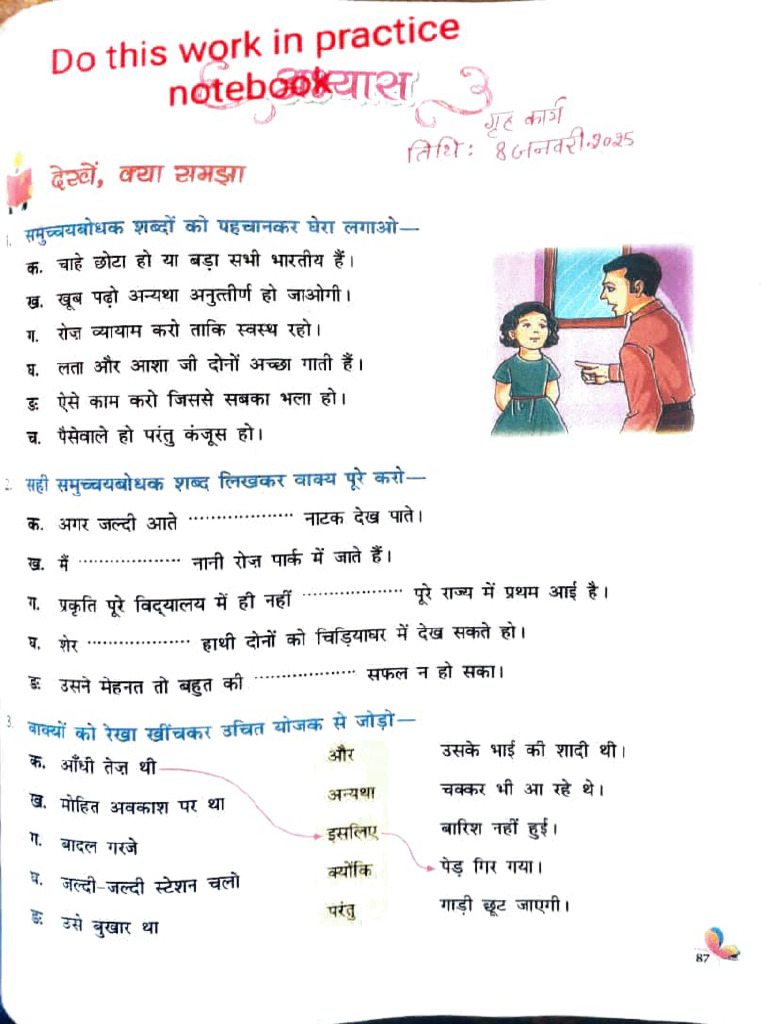 Do this work in practice
notebook
अभ्यास
गृह कार्य
तिथि: 8 जनवरी, 2025
देखें, क्या समझा
1. समुच्चयबोधक शब्दों को पहचानकर घेरा लगाओ—
क. चाहे छोटा हो या बड़ा सभी भारतीय हैं।
ख. खूब पढ़ो अन्यथा अनुत्तीर्ण हो जाओगी।
ग. रोज़ व्यायाम करो ताकि स्वस्थ रहो।
घ. लता और आशा जी दोनों अच्छा गाती हैं।
ङ. ऐसे काम करो जिससे सबका भला हो।
च. पैसेवाले हो परंतु कंजूस हो।
2. सही समुच्चयबोधक शब्द लिखकर वाक्य पूरे करो—
क. अगर जल्दी आते ................... नाटक देख पाते।
ख. मैं ................... नानी रोज़ पार्क में जाते हैं।
ग. प्रकृति पूरे विद्यालय में ही नहीं ................... पूरे राज्य में प्रथम आई है।
घ. शेर ................... हाथी दोनों को चिड़ियाघर में देख सकते हो।
ङ. उसने मेहनत तो बहुत की ................... सफल न हो सका।
3. वाक्यों को रेखा खींचकर उचित योजक से जोड़ो—
क. आँधी तेज़ थी और उसके भाई की शादी थी।
ख. मोहित अवकाश पर था अन्यथा चक्कर भी आ रहे थे।
ग. बादल गरजे इसलिए बारिश नहीं हुई।
घ. जल्दी-जल्दी स्टेशन चलो क्योंकि पेड़ गिर गया।
ङ. उसे बुखार था परंतु गाड़ी छूट जाएगी।
87